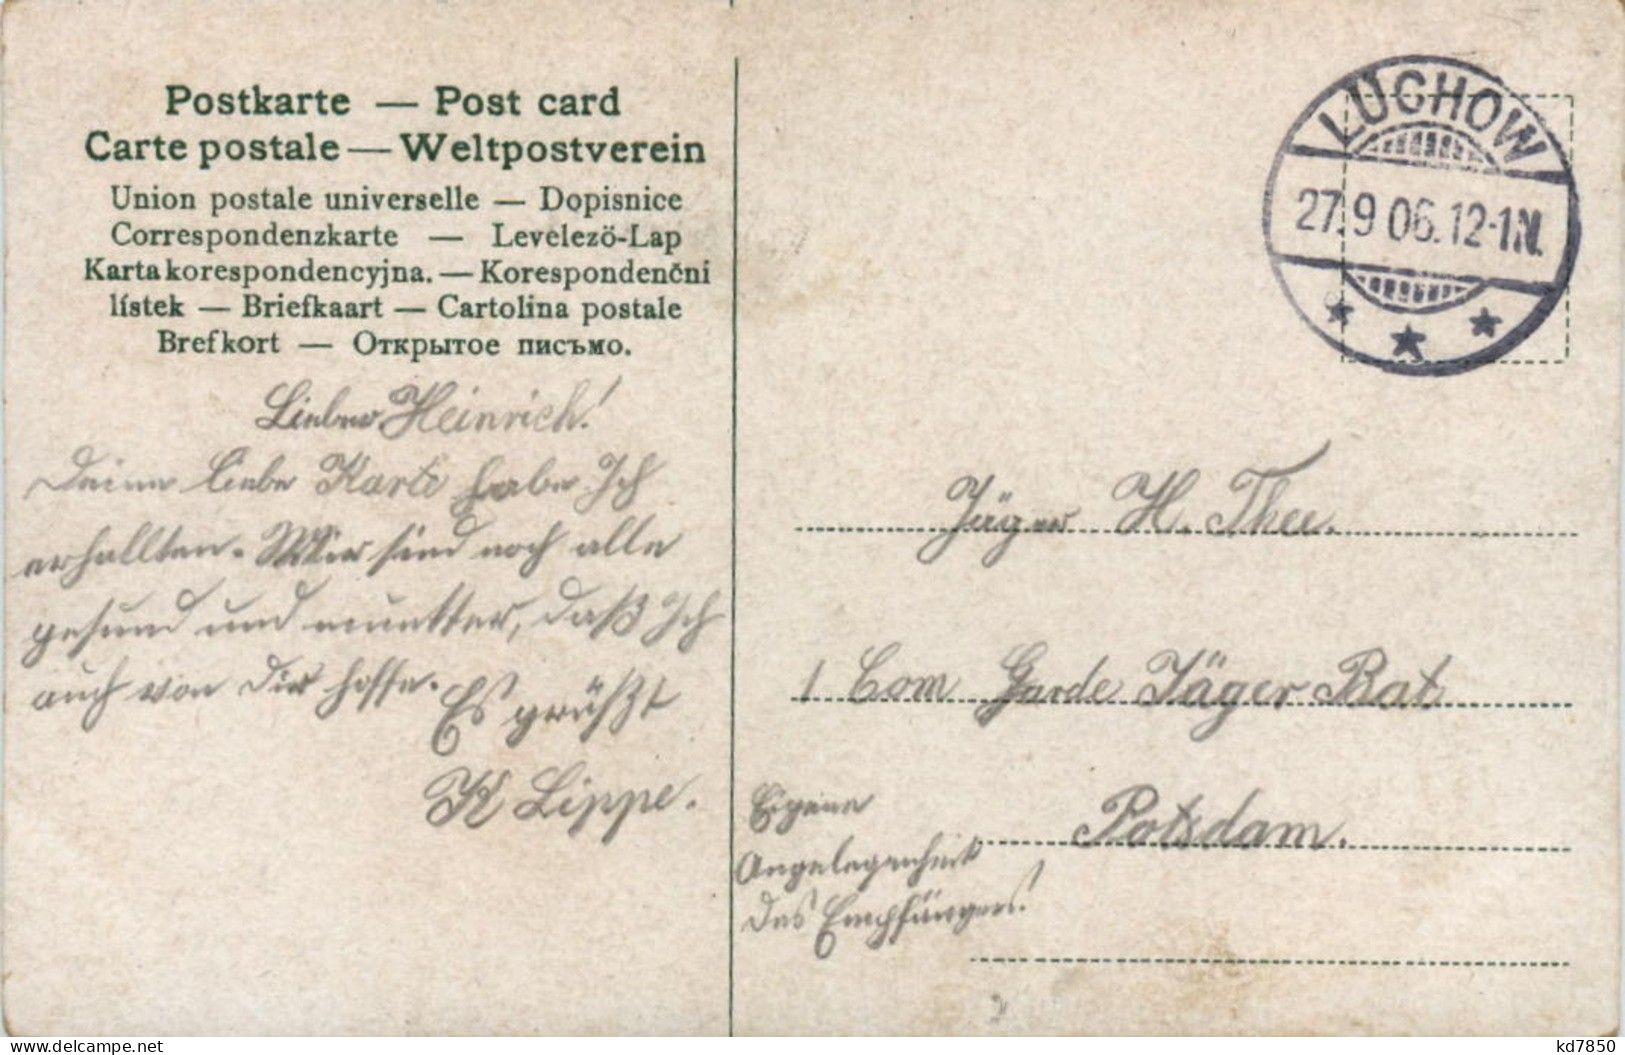 Postkarte — Post card
Carte postale — Weltpostverein
Union postale universelle — Dopisnice
Correspondenzkarte — Levelező-Lap
Karta korespondencyjna. — Korespondenční
lístek — Briefkaart — Cartolina postale
Brefkort — Открытое письмо.
Lieber Heinrich!
Deine liebe Karte habe Ich
erhallten. Wir sind noch alle
gesund und muntter, daß Ich
auch von Dir hoffe.
Es grüßt
K Lippe.
LÜCHOW
27.9 06. 12-1N.
Jäger H. Thee.
1 Com Garde Jäger Bat
Potsdam.
Eigene
Angelegenheit
des Empfängers!
delcampe.net
kd7850